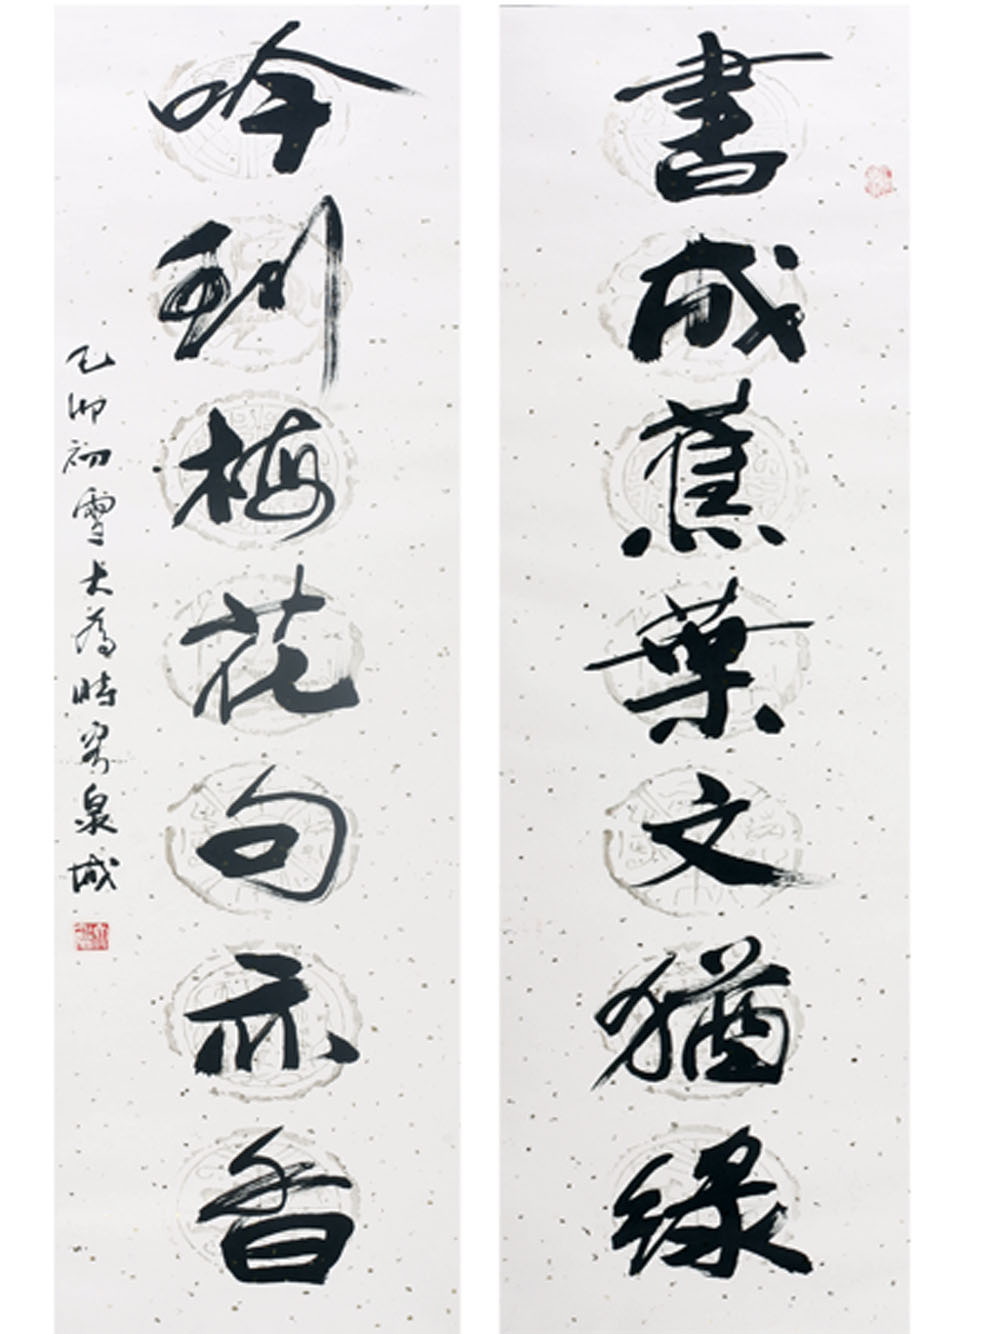 書成蕉葉文猶綠
吟到梅花句亦香
乙卯初雪大為時客泉城